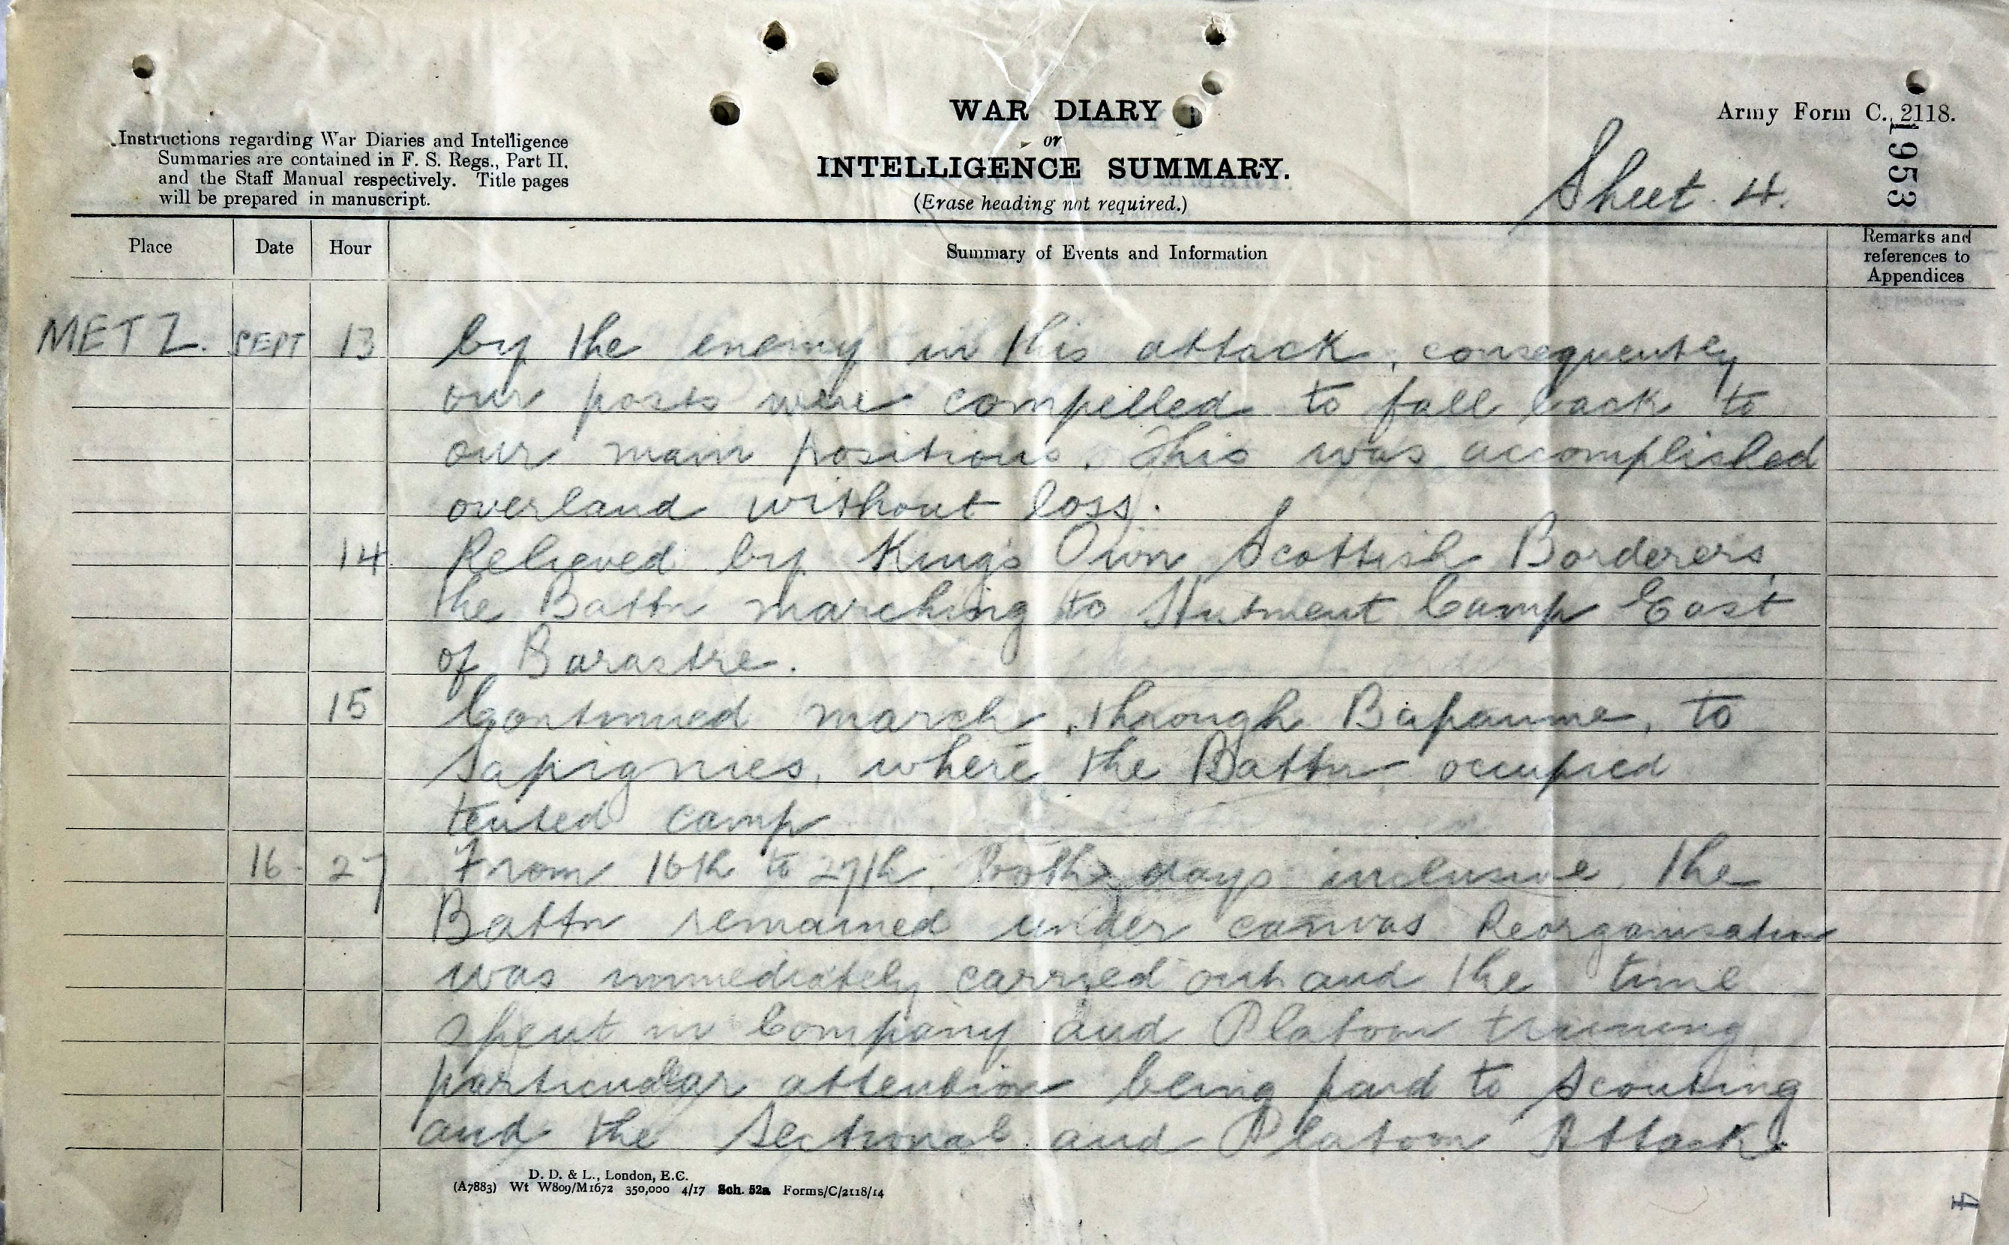 WAR DIARY
or
INTELLIGENCE SUMMARY.
(Erase heading not required.)
Army Form C. 2118.
1953
Instructions regarding War Diaries and Intelligence
Summaries are contained in F. S. Regs., Part II.
and the Staff Manual respectively. Title pages
will be prepared in manuscript.
Sheet. 4.
Place Date Hour Summary of Events and Information Remarks and
references to
Appendices
METZ. SEPT 13 by the enemy in this attack, consequently
our posts were compelled to fall back to
our main positions. This was accomplished
overland without loss.
14 Relieved by Kings Own Scottish Borderers,
the Battn marching to Hutment Camp East
of Barastre.
15 Continued march, through Bapaume, to
Sapignies, where the Battn occupied
tented camp
16 - 27 From 16th to 27th, both days inclusive, the
Battn remained under canvas Reorganisation
was immediately carried out and the time
spent in Company and Platoon training,
particular attention being paid to scouting
and the Sectional and Platoon Attack.
D. D. & L., London, E.C.
(A7883) Wt W809/M1672 350,000 4/17 Sch. 52a Forms/C/2118/14
4